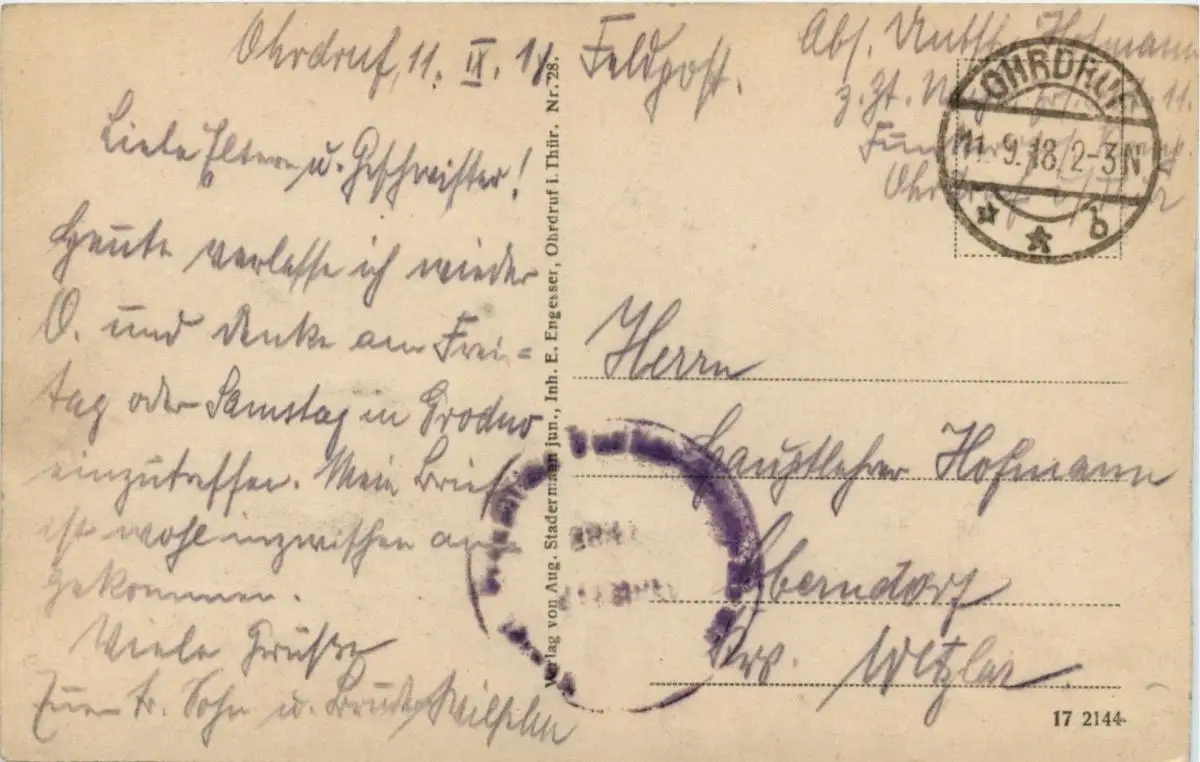 Ohrdruf, 11. IX. 18. Feldpost.
Liebe Eltern u. Geschwister!
Heute verlasse ich wieder
O. und denke am Frei=
tag oder Samstag in Grodno
einzutreffen. Mein Brief
ist wohl inzwischen an
gekommen.
Viele Grüße
Euer tr. Sohn u. Bruder Wilhelm
Verlag von Aug. Stadermann jun., Inh. E. Engesser, Ohrdruf i. Thür. Nr. 28.
Abs. Hofmann
z. Zt. 11.
Ohrdruf
OHRDRUF
11.9.18.2-3N
b
Herrn
Hauptlehrer Hofmann
Oberndorf
Krs. Wetzlar
17 2144